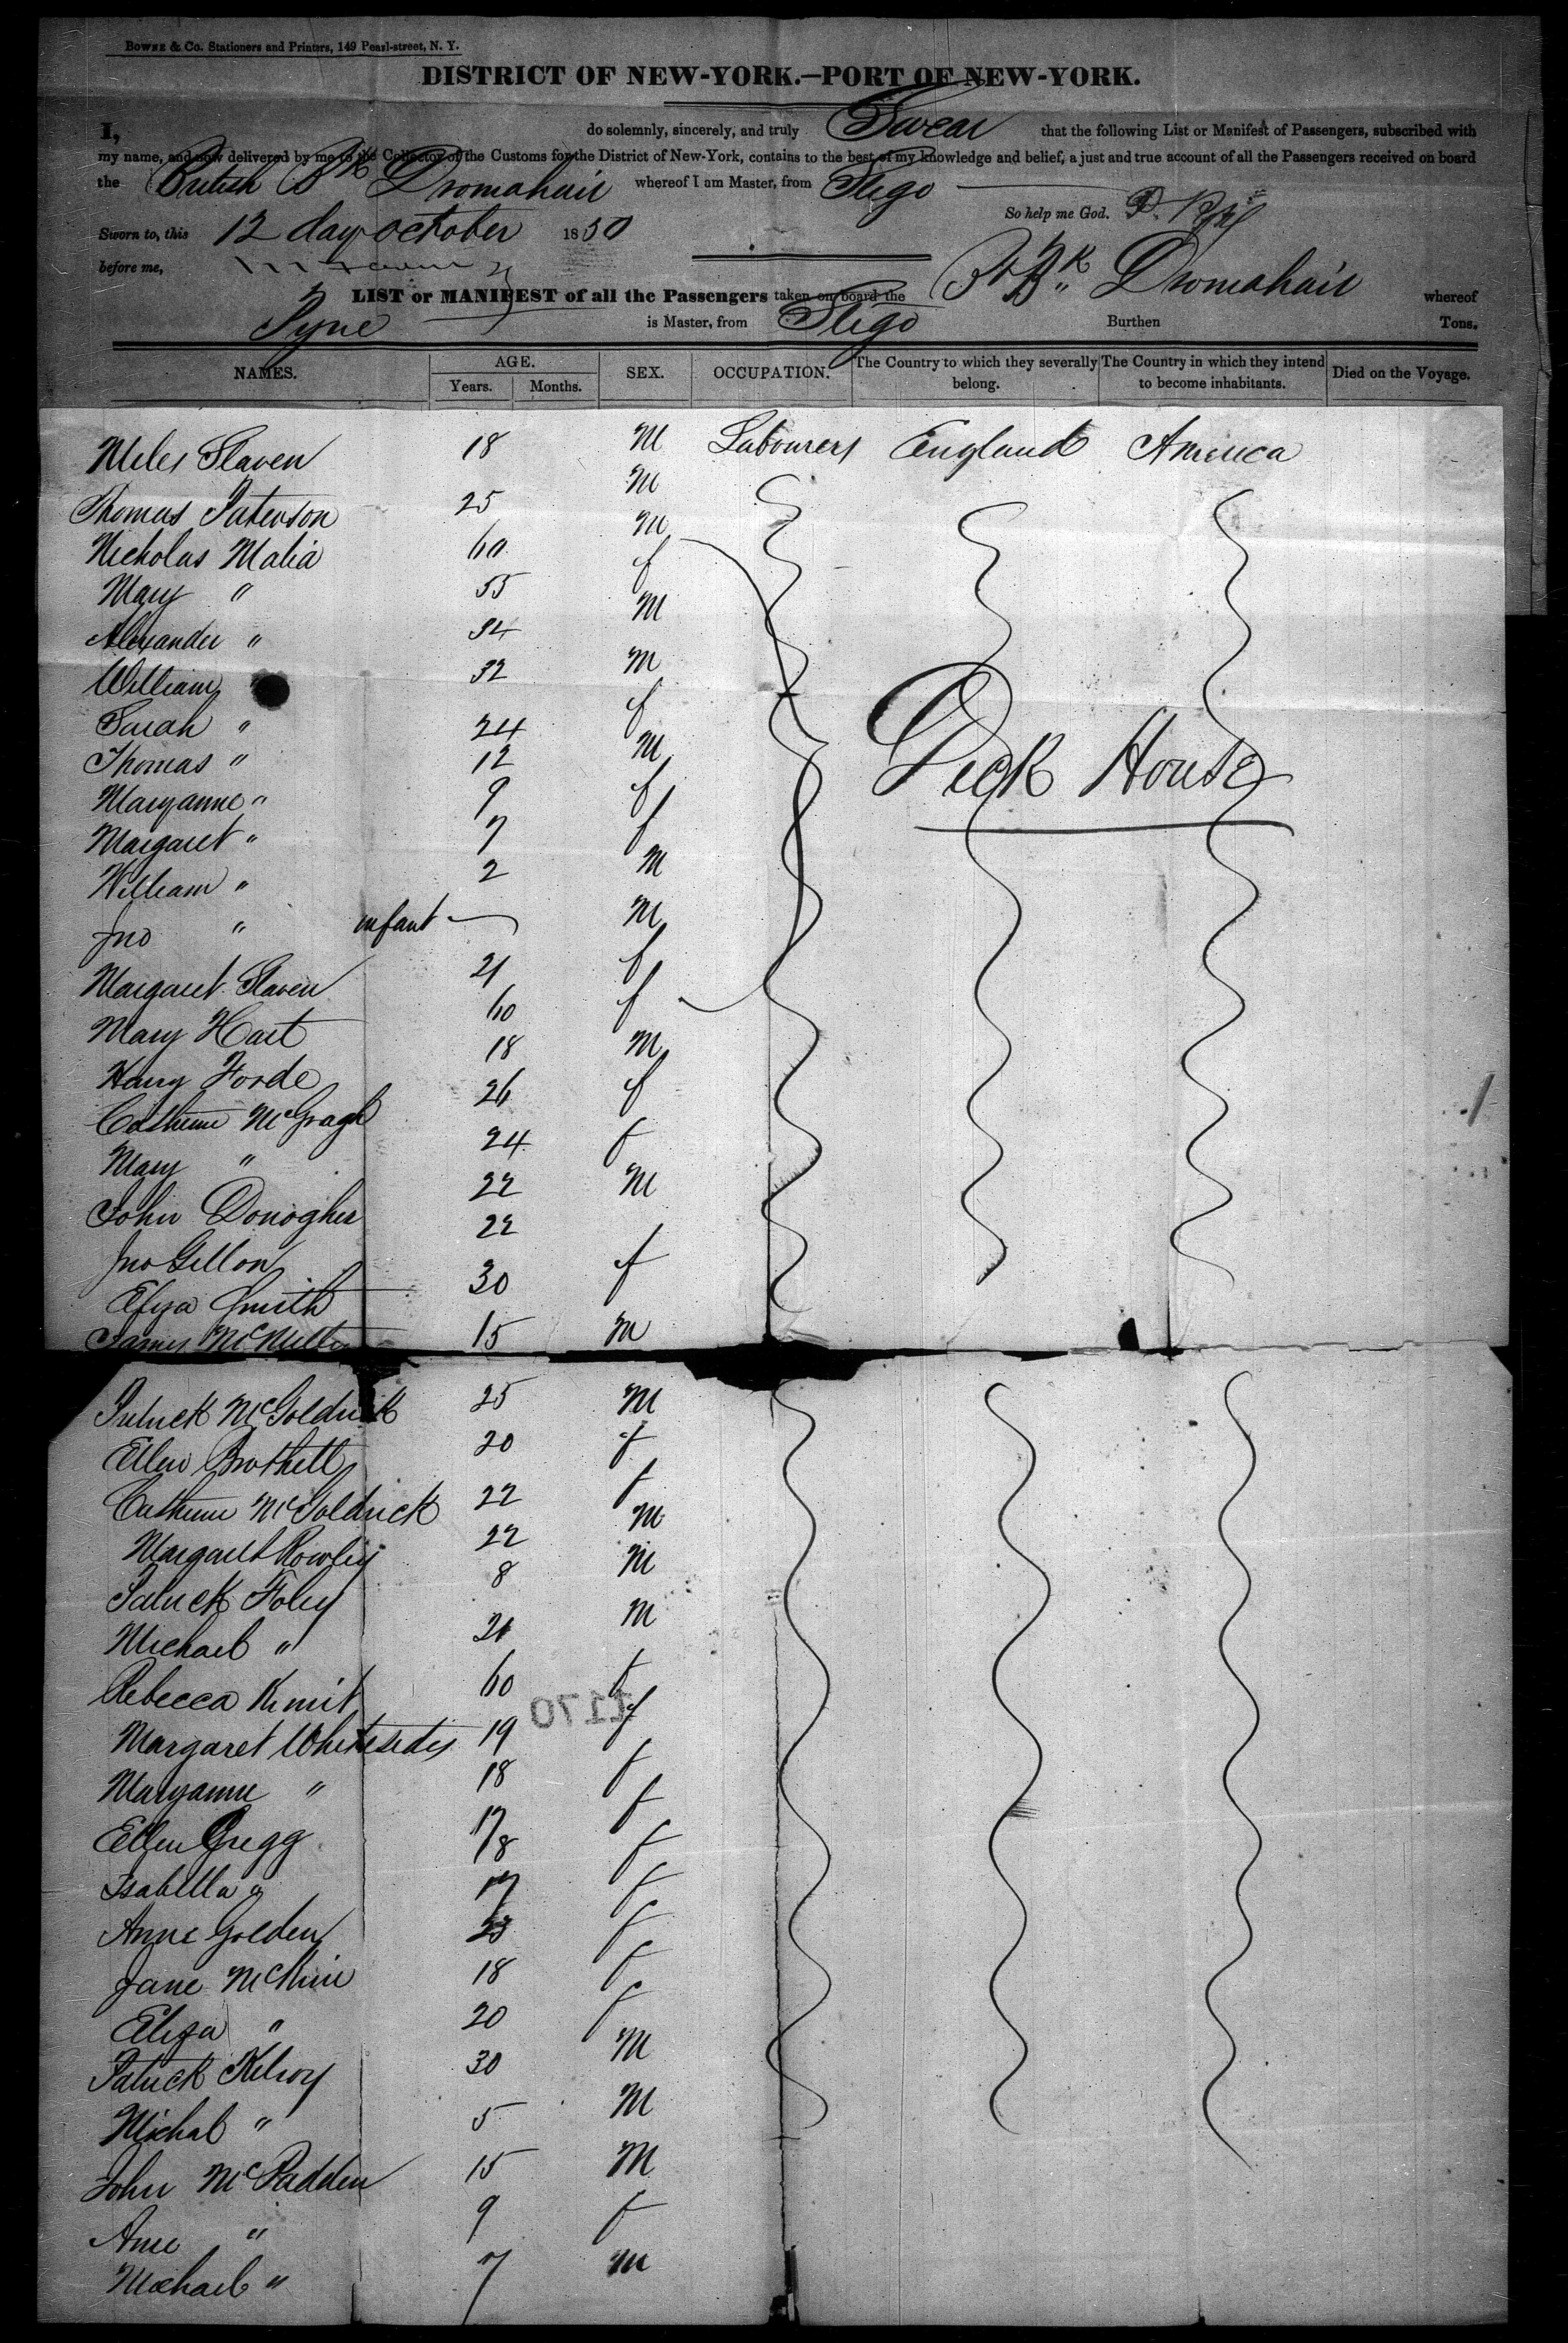 Bowne & Co. Stationers and Printers, 149 Pearl-street, N. Y.
DISTRICT OF NEW-YORK.—PORT OF NEW-YORK.
I, do solemnly, sincerely, and truly Swear that the following List or Manifest of Passengers, subscribed with
my name, and now delivered by me to the Collector of the Customs for the District of New-York, contains to the best of my knowledge and belief, a just and true account of all the Passengers received on board
the British Bk Dromahair whereof I am Master, from Sligo
So help me God.
Sworn to, this 12 day october 1850
before me,
LIST or MANIFEST of all the Passengers taken on board the Bk Dromahair whereof
Pyne is Master, from Sligo Burthen Tons.
NAMES. AGE. Years. Months. SEX. OCCUPATION. The Country to which they severally belong. The Country in which they intend to become inhabitants. Died on the Voyage.
Miles Slaven 18 M Labourers England America
Thomas Paterson 25 M
Nicholas Malia 60 M
Mary " 55 f
Alexander " 34 M
William 32 M
Sarah " 24 f
Deck House
Thomas " 12 M
Maryanne " 9 f
Margaret " 7 f
William " 2 M
Jno " infant M
Margaret Slaven 21 f
Mary Hart 60 f
Henry Forde 18 M
Catherine McGragh 26 f
Mary " 24 f
John Donogher 22 M
Jno Gillon 22
Eliza Smith 30 f
James 15 M
Patrick McGoldrick 25 M
Ellen 20 f
Catherine McGoldrick 22 f
Margaret Rowley 22 M
Patrick Foley 8 M
Michael " 21 M
Rebecca 60 f
1170
Margaret Whitesides 19 f
Maryanne " 18 f
Ellen Gregg 17 f
Isabella " 18 f
Anne Golden 17 f
23 f
Jane 18 f
Eliza " 20 f
Patrick Kilroy 30 M
Michal " 5 M
John McPadden 15 M
Anne " 9 f
Michael " 7 M